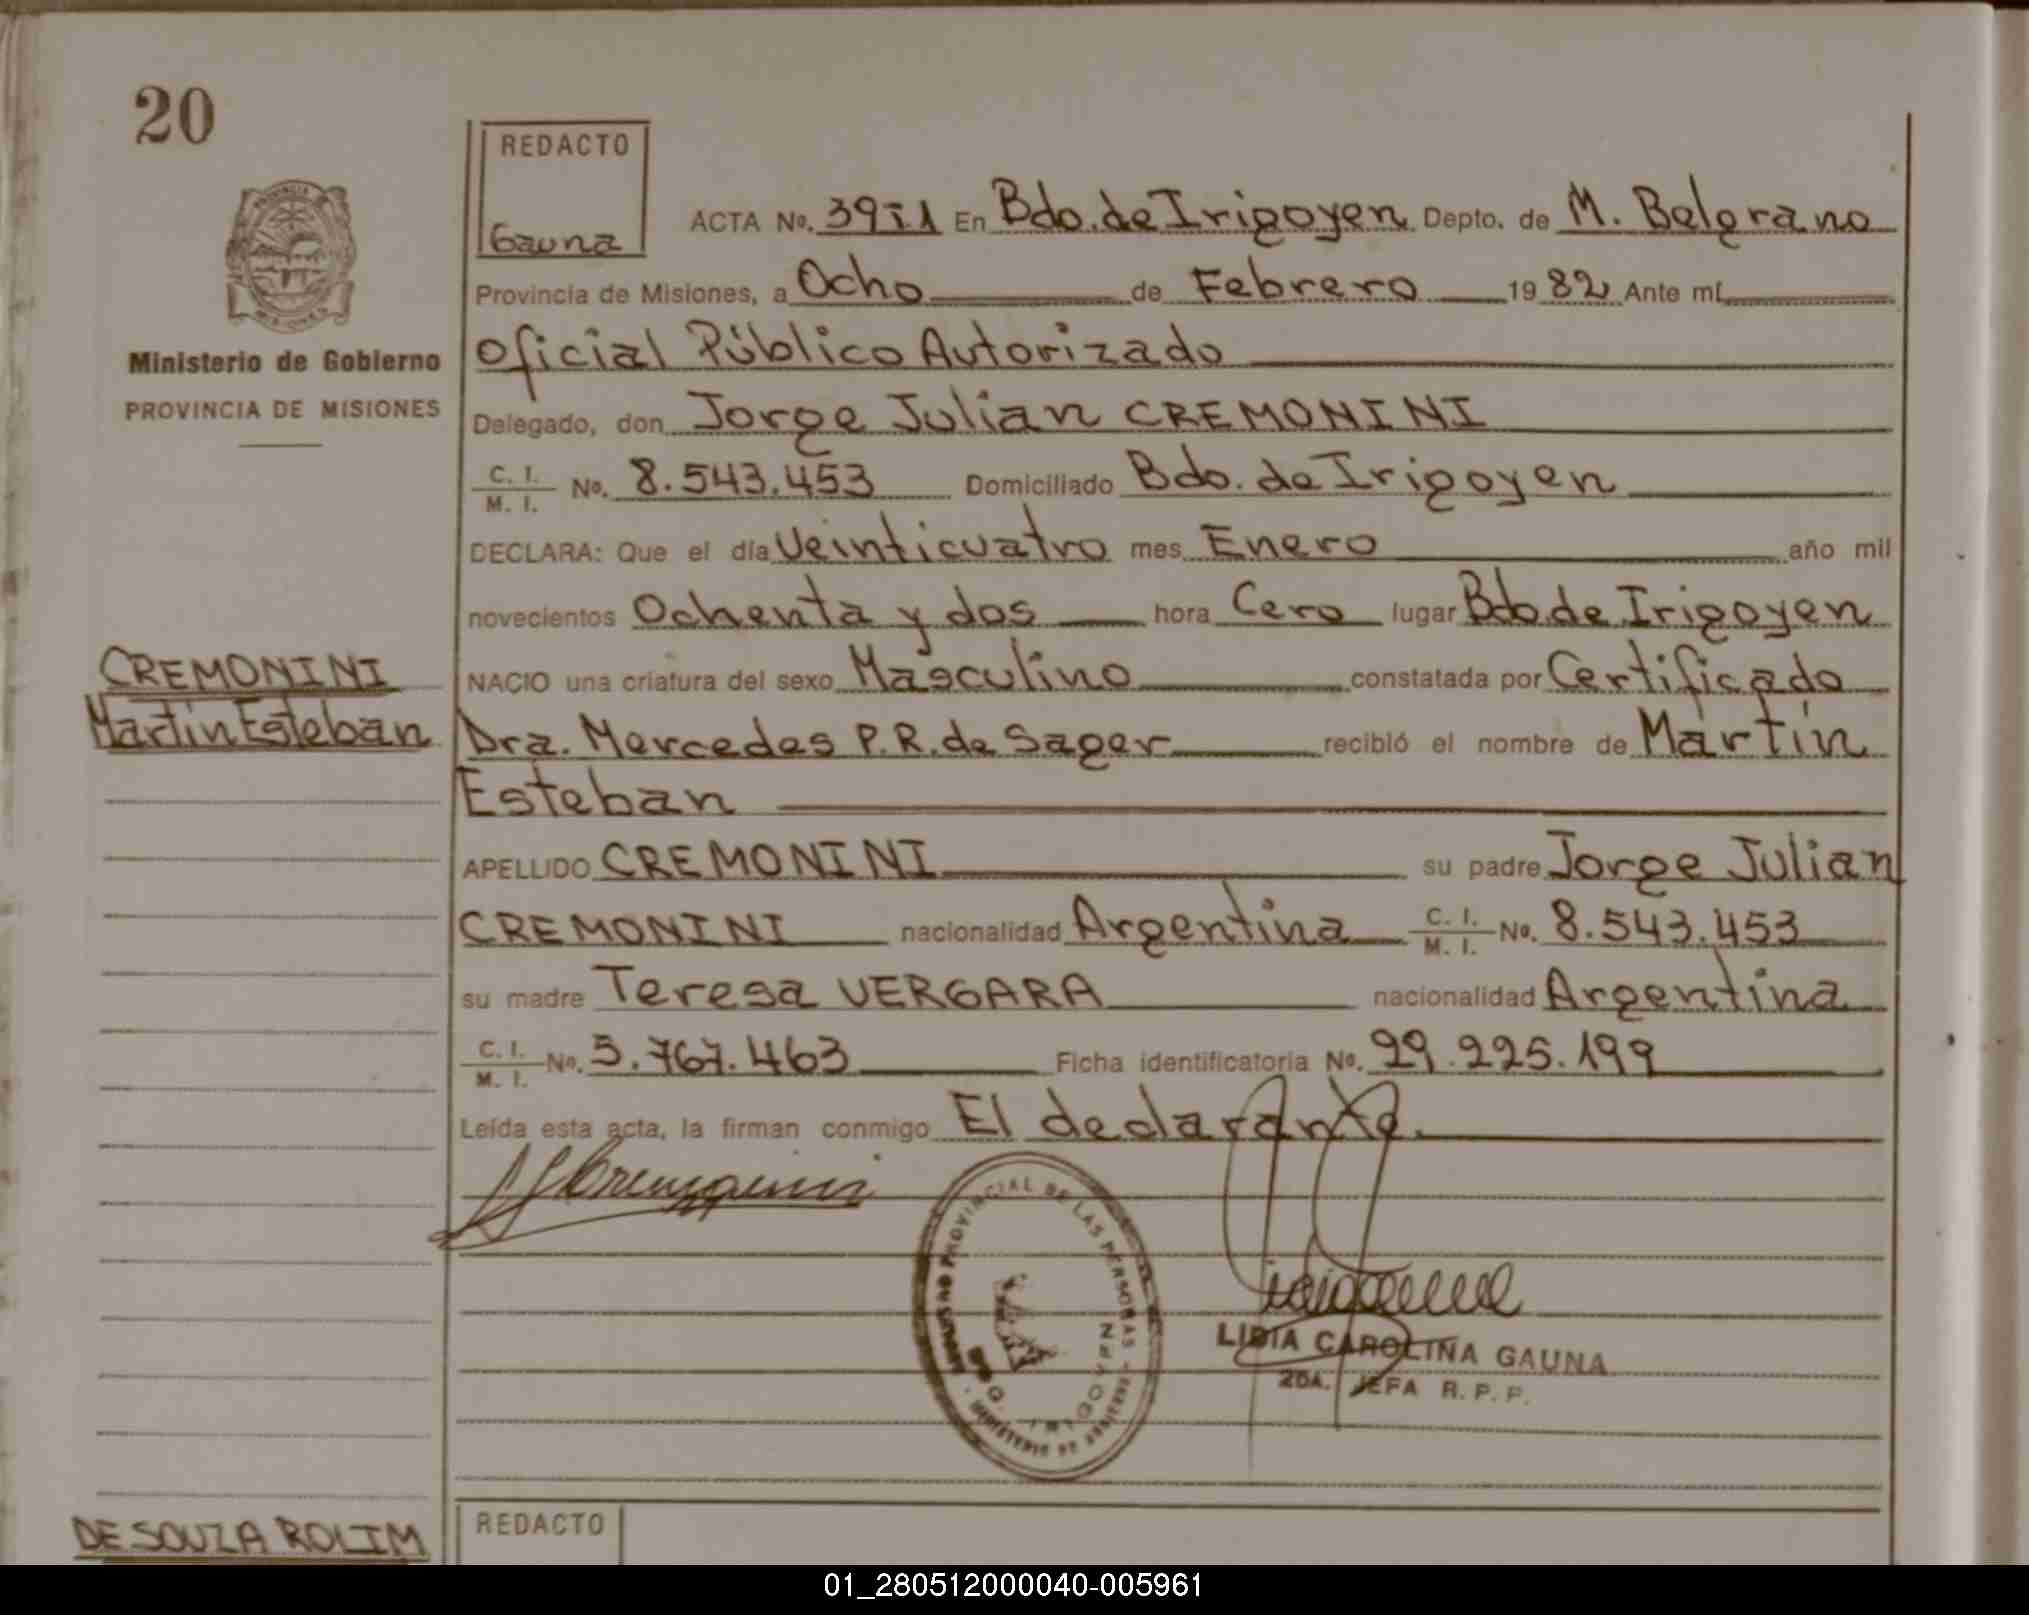 20
REDACTO
Gauna
ACTA No. 39 En Bdo. de Irigoyen Depto. de M. Belgrano
Provincia de Misiones, a Ocho de Febrero 1982 Ante mí
Oficial Público Autorizado
Ministerio de Gobierno
PROVINCIA DE MISIONES
Delegado, don Jorge Julian CREMONINI
C. I.
M. I. No. 8.543.453 Domiciliado Bdo. de Irigoyen
DECLARA: Que el día Veinticuatro mes Enero año mil
novecientos Ochenta y dos hora Cero lugar Bdo. de Irigoyen
CREMONINI
Martín Esteban
NACIO una criatura del sexo Masculino constatada por Certificado
Dra. Mercedes P.R. de Sager recibió el nombre de Martín
Esteban
APELLIDO CREMONINI su padre Jorge Julian
CREMONINI nacionalidad Argentina C. I. M. I. No. 8.543.453
su madre Teresa VERGARA nacionalidad Argentina
C. I.
M. I. No. 5.767.463 Ficha identificatoria No. 29.225.199
Leída esta acta, la firman conmigo El declarante.
PROVINCIAL DE LAS PERSONAS
MINISTERIO DE
IRIGOYEN
LIDIA CAROLINA GAUNA
2DA. JEFA R. P. P.
DE SOUZA ROLIM
REDACTO
01_280512000040-005961